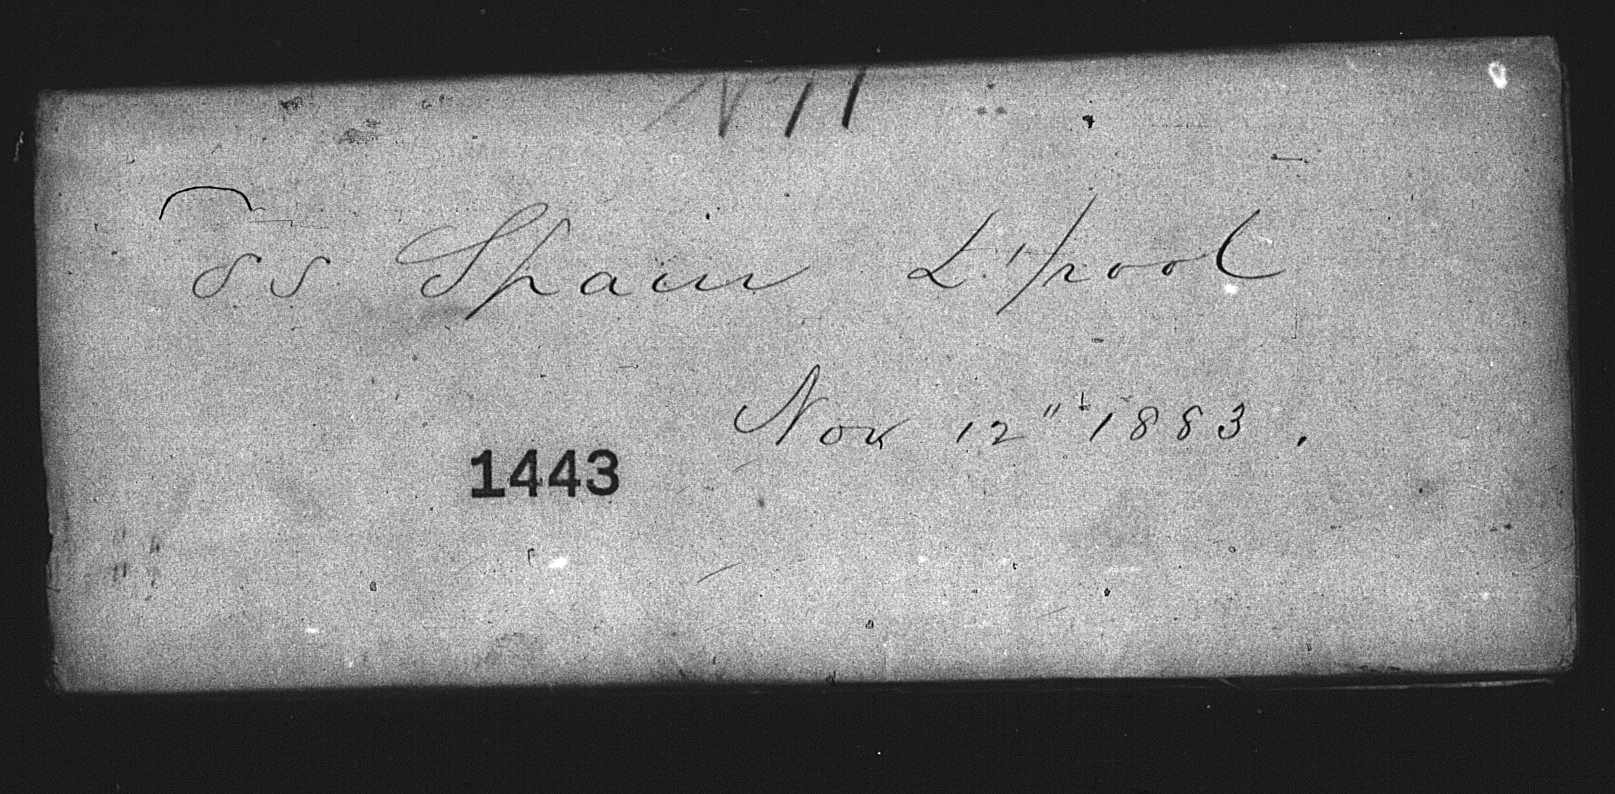 SS Spain L'pool
Nov 12" 1883.
1443